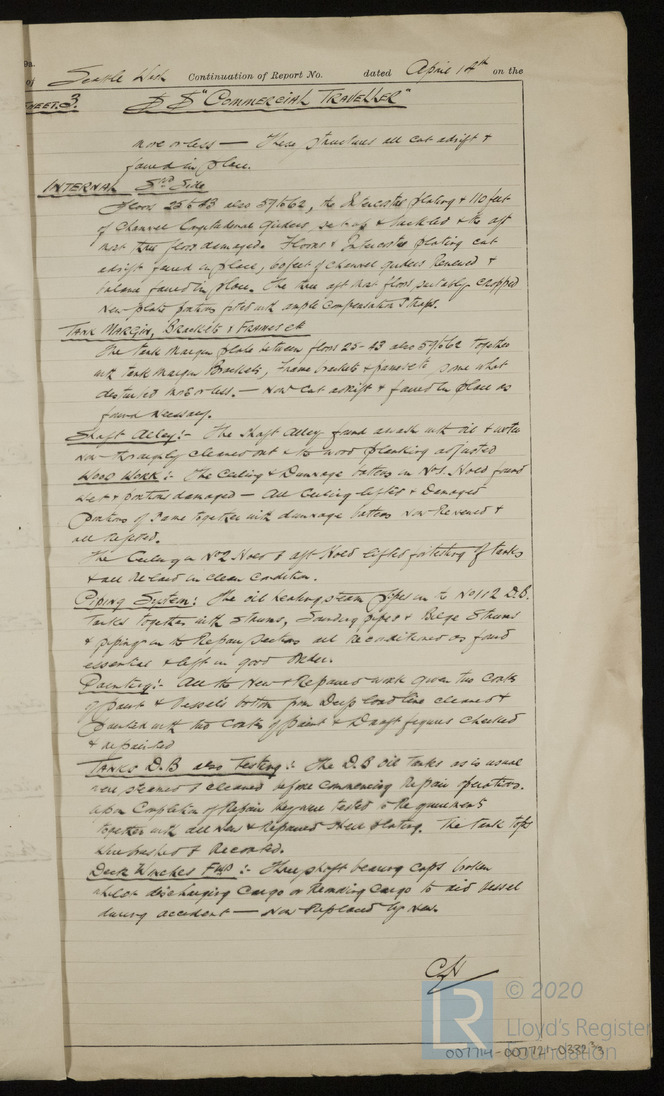 of Seattle Wash Continuation of Report No. dated April 14th on the
SHEET. 3. S S "COMMERCIAL TRAVELLER"
more or less — These structures all cut adrift &
faired in place.
INTERNAL Side
Floors 25 to 43 also 59 to 62, the Intercostal plating & 110 feet
of Channel Longitudinal Girders, set up & buckled & the aft
most three floors damaged. Floors & Intercostal plating cut
adrift faired in place, 60 feet of channel girders Renewed &
balance faired in place. The three aft most floors suitably cropped
New plate portions fitted with ample Compensation Straps.
TANK MARGIN, BRACKETS & FRAMES etc
The tank margin plate between floors 25-43 also 59 to 62 together
with tank margin Brackets, frame brackets & some what
disturbed more or less. — Now cut adrift & faired in place as
found necessary.
Shaft Alley:- The shaft alley found awash with oil & water
Now thoroughly cleaned out & the wood planking adjusted
WOOD WORK:- The Ceiling & Dunnage battens in No 1. Hold found
wet & portions damaged — All Ceiling lifted & Damaged
portions of same together with dunnage battens Now Renewed &
all refitted.
The Ceiling in No 2 Hold & aft Hold lifted for testing of tanks
& all Relaid in clean condition.
Piping System: The oil heating steam pipes in the No 1 & 2 D.B.
Tanks together with Strums, Sounding pipes & Bilge Strums
& piping in the Repair sections all reconditioned as found
essential & left in good order.
Painting:- All the New & Repaired work given two coats
of paint & Vessels bottom from Deep load line cleaned &
painted with two coats of paint & Draft figures checked
& repainted
TANKS D.B also Testing:- The D.B oil tanks as is usual
were steamed & cleaned before commencing Repair operations.
Upon Completion of Repair they were tested to Requirements
together with all New & Repaired Shell plating. The tank tops
Wire brushed & Recoated.
Deck Winches Fwd:- Three shaft bearing Caps broken
whilst discharging Cargo or Removing Cargo to aid vessel
during accident — Now Replaced by new.
LR
© 2020
Lloyd's Register
Foundation
007714-007721-0332 3/3